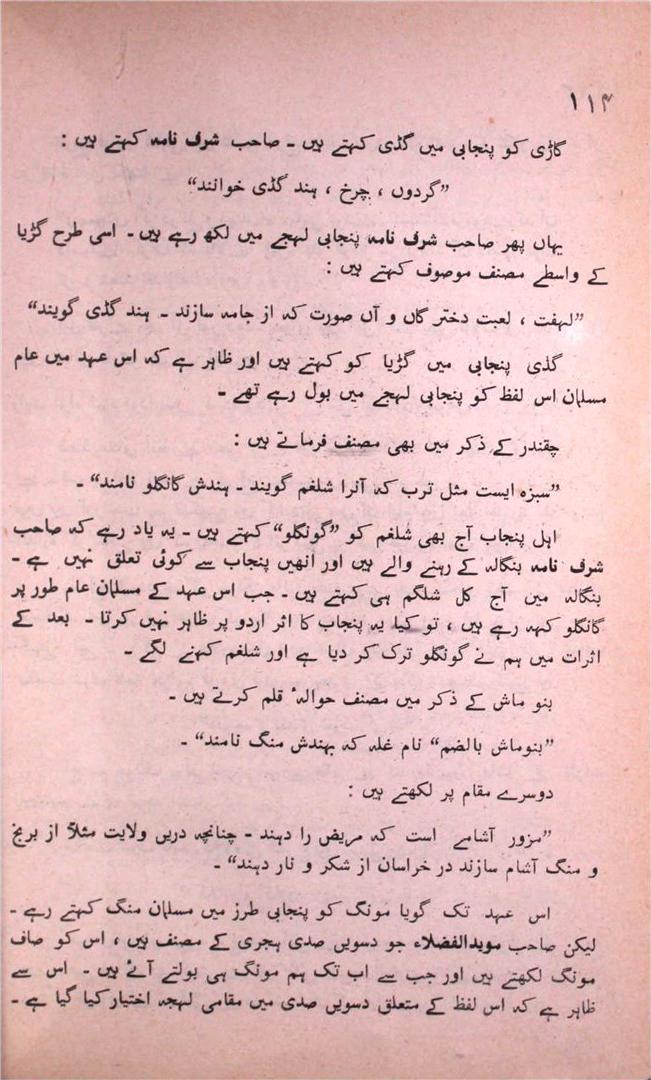 ۱۱۴
گاڑی کو پنجابی میں گڈی کہتے ہیں ۔ صاحب شرف نامہ کہتے ہیں :
”گردوں ، چرخ ، ہند گڈی خوانند“
یہاں پھر صاحب شرف نامہ پنجابی لہجے میں لکھ رہے ہیں ۔ اسی طرح گڑیا
کے واسطے مصنف موصوف کہتے ہیں :
”لہفت ، لعبت دختر گاں و آں صورت کہ از جامہ سازند ۔ ہند گڈی گویند“
گڈی پنجابی میں گڑیا کو کہتے ہیں اور ظاہر ہے کہ اس عہد میں عام
مسلمان اس لفظ کو پنجابی لہجے میں بول رہے تھے ۔
چقندر کے ذکر میں بھی مصنف فرماتے ہیں :
”سبزہ ایست مثل ترب کہ آنرا شلغم گویند ۔ ہندش گانگلو نامند“ ۔
اہل پنجاب آج بھی شلغم کو ”گونگلو“ کہتے ہیں ۔ یہ یاد رہے کہ صاحب
شرف نامہ بنگالہ کے رہنے والے ہیں اور انھیں پنجاب سے کوئی تعلق نہیں ہے ۔
بنگالہ میں آج کل شلگم ہی کہتے ہیں ۔ جب اس عہد کے مسلمان عام طور پر
گانگلو کہہ رہے ہیں ، تو کیا یہ پنجاب کا اثر اردو پر ظاہر نہیں کرتا ۔ بعد کے
اثرات میں ہم نے گونگلو ترک کر دیا ہے اور شلغم کہنے لگے ۔
بنو ماش کے ذکر میں مصنف حوالۂ قلم کرتے ہیں ۔
”بنوماش بالضم“ نام غلہ کہ بہندش منگ نامند“ ۔
دوسرے مقام پر لکھتے ہیں :
”مزور آشامے است کہ مریض را دہند ۔ چنانچہ دریں ولایت مثلاً از برنج
و منگ آشام سازند در خراسان از شکر و نار دہند“ ۔
اس عہد تک گویا مونگ کو پنجابی طرز میں مسلمان منگ کہتے رہے ۔
لیکن صاحب مویدالفضلاء جو دسویں صدی ہجری کے مصنف ہیں ، اس کو صاف
مونگ لکھتے ہیں اور جب سے اب تک ہم مونگ ہی بولتے آئے ہیں ۔ اس سے
ظاہر ہے کہ اس لفظ کے متعلق دسویں صدی میں مقامی لہجہ اختیار کیا گیا ہے ۔